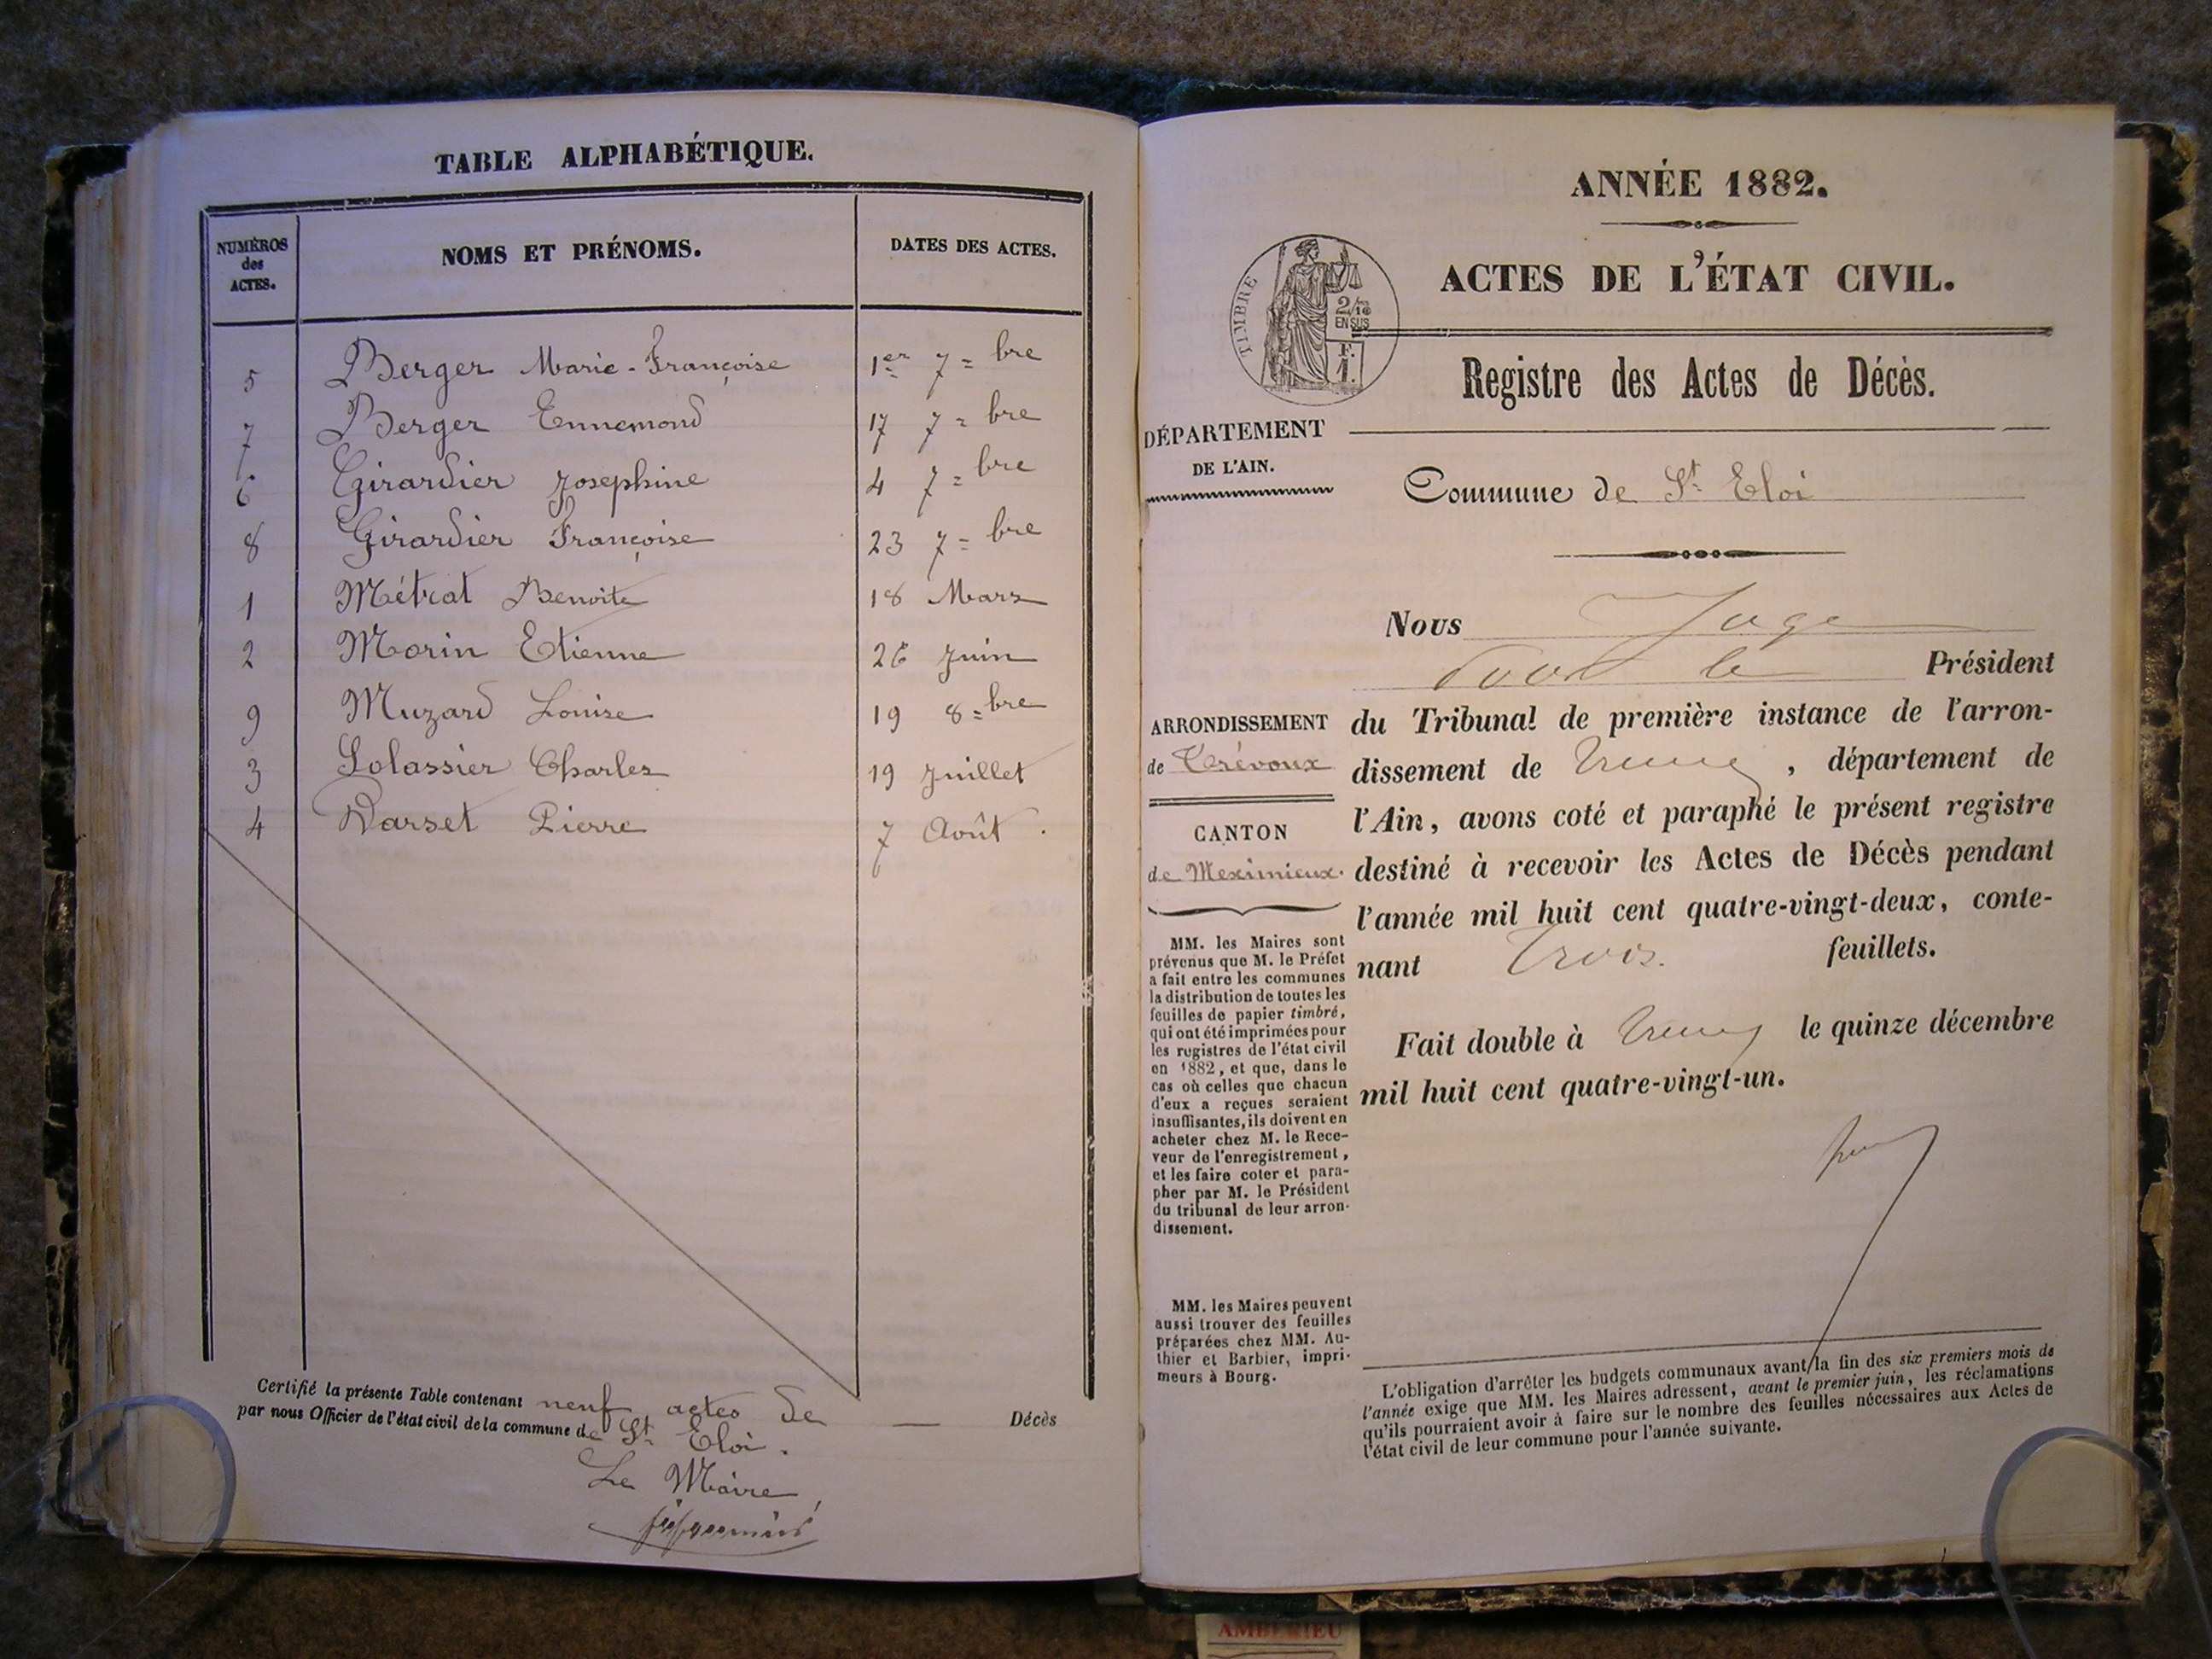 TABLE ALPHABÉTIQUE.
NUMÉROS
des
ACTES.
NOMS ET PRÉNOMS.
DATES DES ACTES.
5 Berger Marie-Françoise 1er 7=bre
7 Berger Ennemond 17 7=bre
6 Girardier Josephine 4 7=bre
8 Girardier Françoise 23 7=bre
1 Métrat Benoite 18 Mars
2 Morin Etienne 26 Juin
9 Muzard Louise 19 8=bre
3 Solassier Charles 19 Juillet
4 Parset Pierre 7 Août.
Certifié la présente Table contenant neuf actes de — Décès
par nous Officier de l'état civil de la commune de St Eloi.
Le Maire
ANNÉE 1882.
ACTES DE L'ÉTAT CIVIL.
TIMBRE
2/10
EN SUS
F.
1.
Registre des Actes de Décès.
DÉPARTEMENT
DE L'AIN.
Commune de St Eloi
Nous Juge
Président
ARRONDISSEMENT
de Trévoux
CANTON
de Meximieux.
du Tribunal de première instance de l'arron-
dissement de Trévoux, département de
l'Ain, avons coté et paraphé le présent registre
destiné à recevoir les Actes de Décès pendant
l'année mil huit cent quatre-vingt-deux, conte-
nant Trois. feuillets.
Fait double à Trévoux le quinze décembre
mil huit cent quatre-vingt-un.
MM. les Maires sont
prévenus que M. le Préfet
a fait entre les communes
la distribution de toutes les
feuilles de papier timbré,
qui ont été imprimées pour
les registres de l'état civil
en 1882, et que, dans le
cas où celles que chacun
d'eux a reçues seraient
insuffisantes, ils doivent en
acheter chez M. le Rece-
veur de l'enregistrement,
et les faire coter et para-
pher par M. le Président
du tribunal de leur arron-
dissement.
MM. les Maires peuvent
aussi trouver des feuilles
préparées chez MM. Au-
thier et Barbier, impri-
meurs à Bourg.
L'obligation d'arrêter les budgets communaux avant la fin des six premiers mois de
l'année exige que MM. les Maires adressent, avant le premier juin, les réclamations
qu'ils pourraient avoir à faire sur le nombre des feuilles nécessaires aux Actes de
l'état civil de leur commune pour l'année suivante.
AMBERIEU